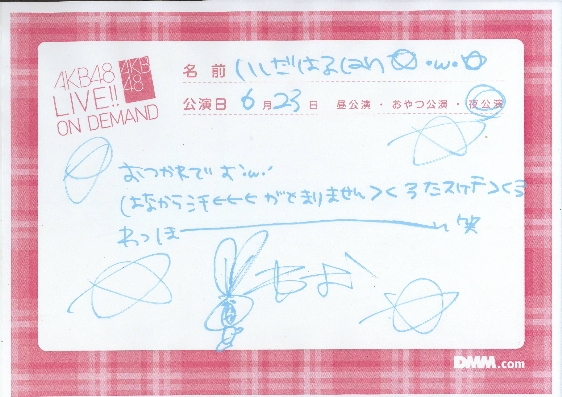 AKB48
LIVE!!
ON DEMAND
AKB
48
名前 いしだはるにゃん ・ω・
公演日 6月23日 昼公演・おやつ公演・夜公演
おつかれでお・ω・
はなから汗ししし がとまりません>< るたスケテ><る
わっほーーーい 笑
DMM.com